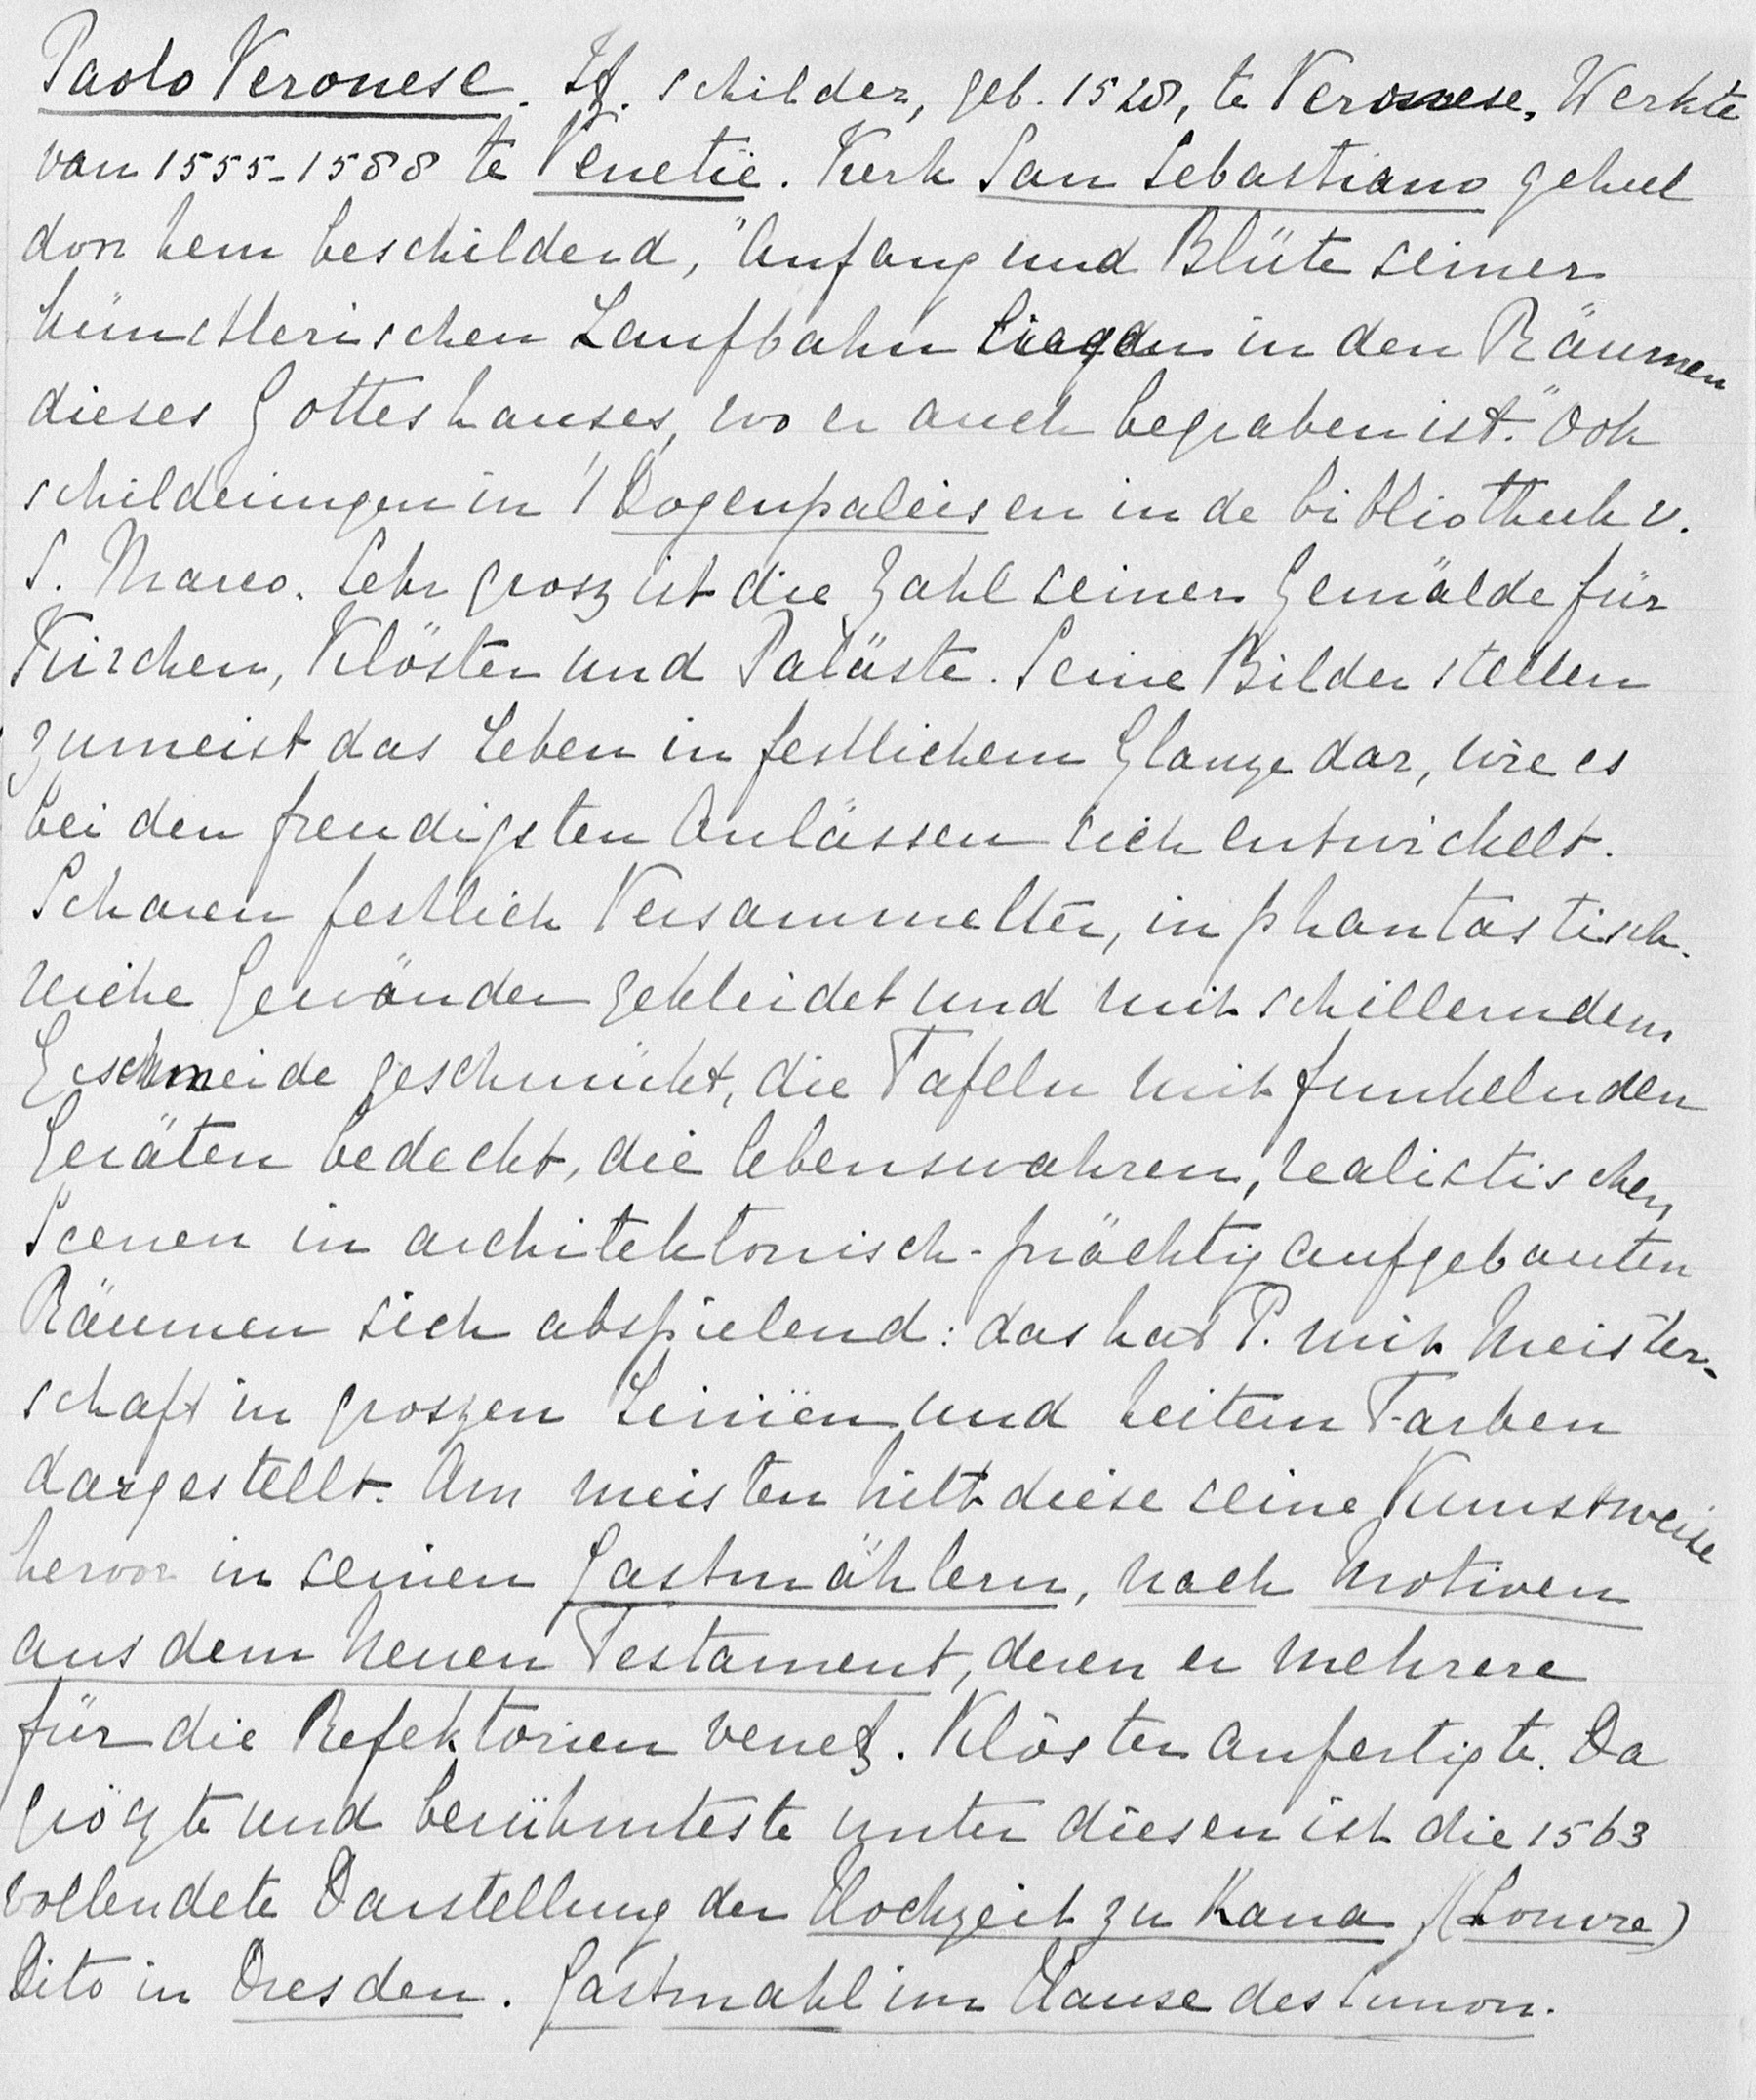 Paolo Veronese. It. schilder, geb. 1528, te Veronese. Werkte
van 1555-1588 te Venetië. Kerk San Sebastiano geheel
door hem beschilderd, "Anfang und Blüte seiner
künstlerischen Laufbahn liegen in den Räumen
dieses Gotteshauses, wo er auch begraben ist." Ook
schilderingen in 't Dogenpaleis en in de bibliotheek v.
S. Marco. Sehr grosz ist die Zahl seiner Gemälde für
Kirchen, Klöster und Paläste. Seine Bilder stellen
zumeist das Leben in festlichem Glanze dar, wie es
bei den freudigsten Anlässen sich entwickelt.
Scharen festlich Versammelter, in phantastisch-
reiche Gewänder gekleidet und mit schillerndem
Geschmeide geschmückt, die Tafeln mit funkelnden
Geräten bedeckt, die lebenswahren, realistischen
Scenen in architektonisch-prächtig aufgebauten
Räumen sich abspielend: das hat P. mit Meister-
schaft in groszen Leiniën und heitern Farben
dargestellt. Am meisten tritt diese seine Kunstweise
hervor in seinen Gastmählern, nach Motiven
aus dem Neuen Testament, deren er mehrere
für die Refektorien venez. Klöster anfertigte. Da
gröszte und berühmteste unter diesen ist die 1563
vollendete Darstellung der Hochzeit zu Kana (Louvre)
Dito in Dresden. Gastmahl im Hause des Simon.